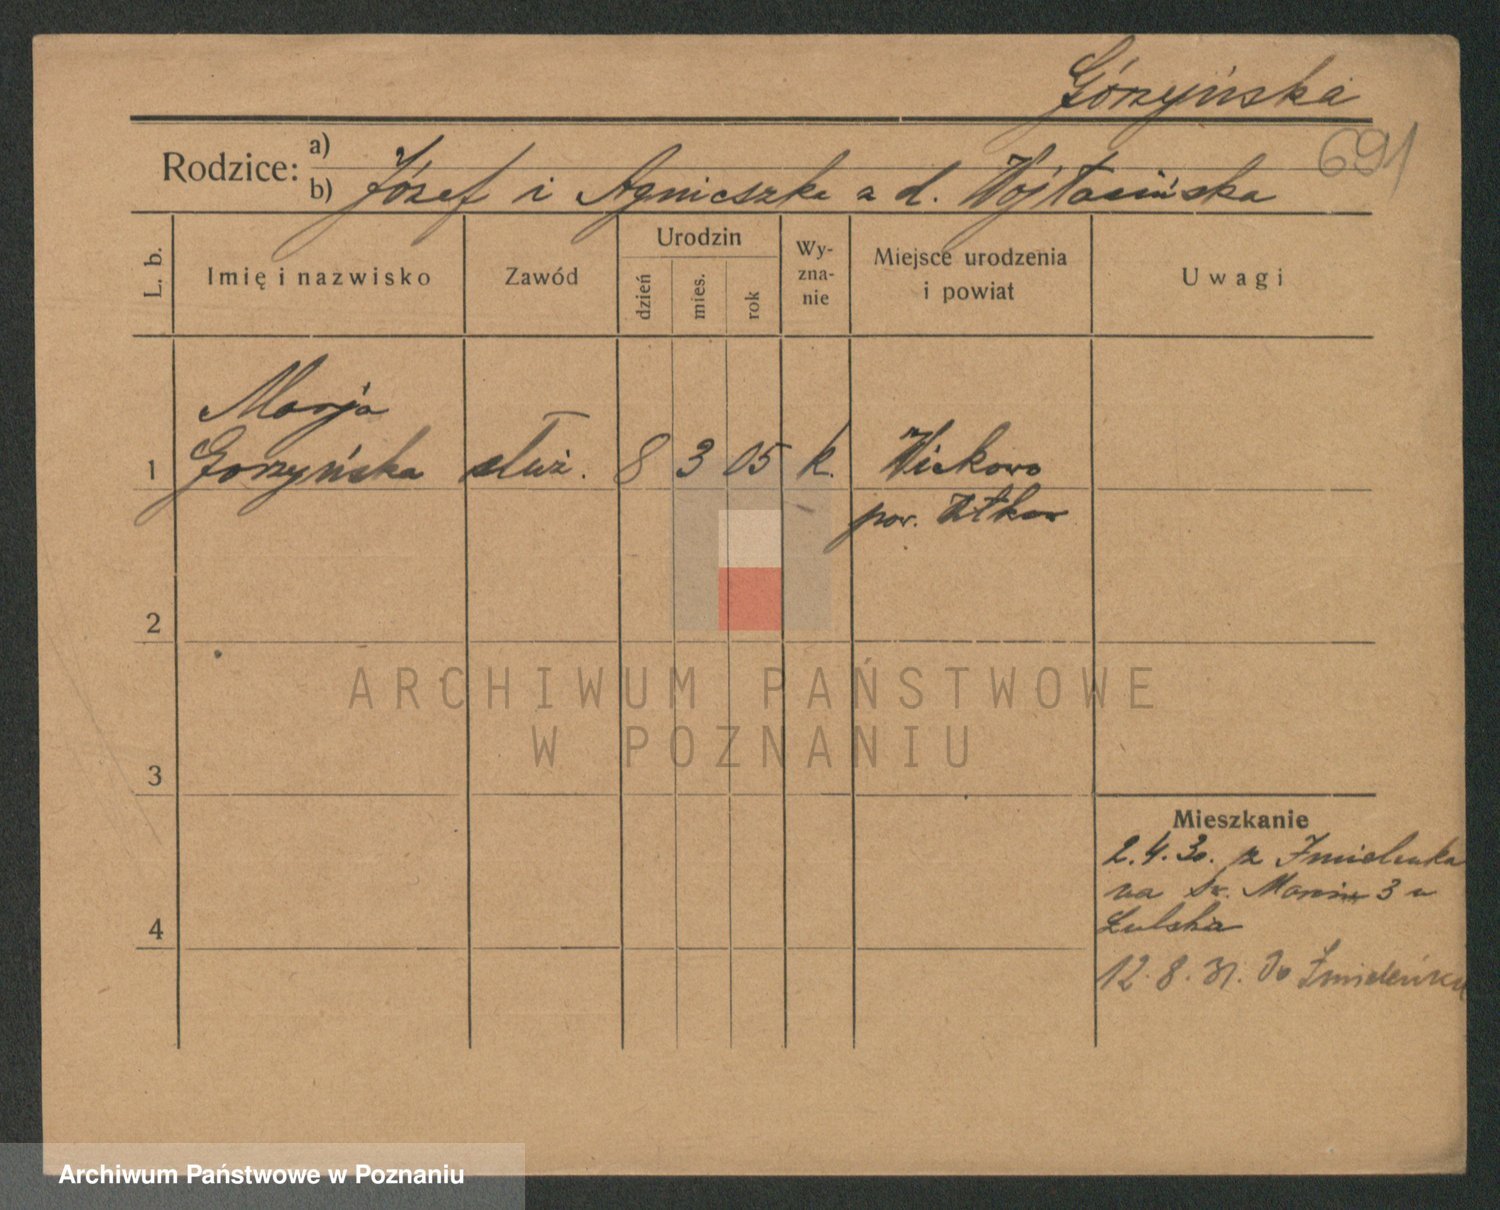 Górzyńska
691
Rodzice: a)
b) Józef i Agnieszka a d. Wojtasińska
L. b.
Imię i nazwisko
Zawód
Urodzin
dzień
mies.
rok
Wy-
zna-
nie
Miejsce urodzenia
i powiat
Uwagi
Marja
1 Gorzyńska służ. 8 3 05 k. Wiekowo
pow.
2
3
4
Mieszkanie
2.4.30. z
na św. Marcin 3 u
12.8.31. do
ARCHIWUM PAŃSTWOWE
W POZNANIU
Archiwum Państwowe w Poznaniu